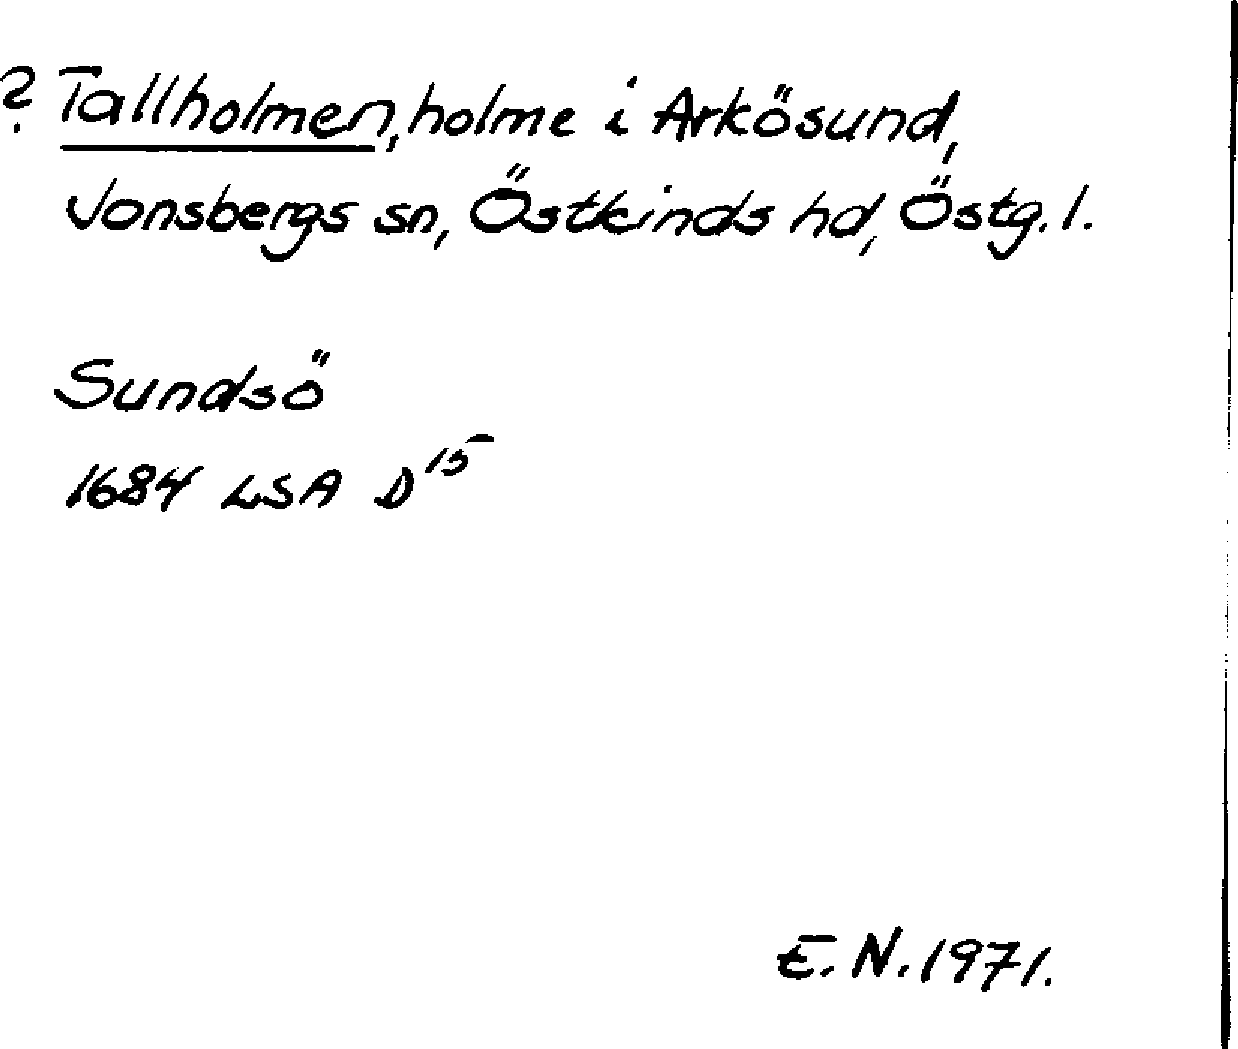 ? Tallholmen, holme i Arkösund,
Jonsbergs sn, Östkinds hd, Östg. l.
Sundsö
1684 LSA D 15
E. N. 1971.